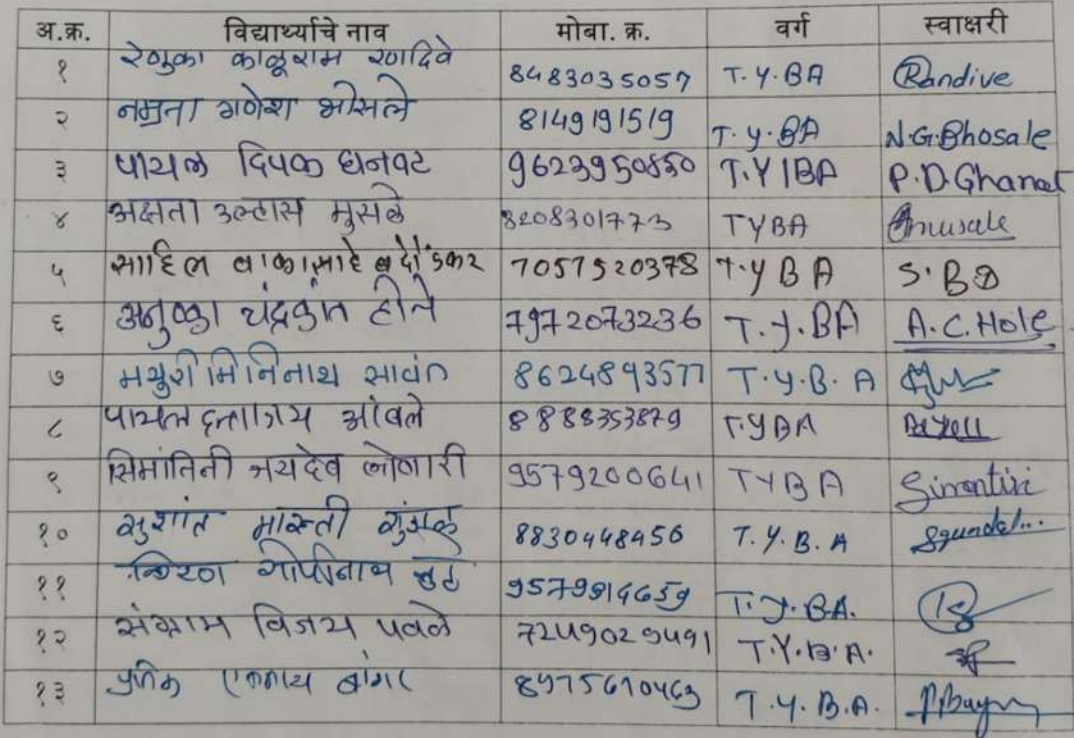 अ.क्र. विद्यार्थ्याचे नाव मोबा. क्र. वर्ग स्वाक्षरी
१ रेणुका काळूराम रणदिवे 8483035057 T.Y.BA Randive
२ नम्रता गणेश भोसले 8149191519 T.Y.BA N.G.Bhosale
३ पायल दिपक घनवट 9623950850 T.Y BA P.D.Ghanat
४ अक्षता उल्हास मुसळे 8208301773 TYBA
५ साहिल 7057520378 T.Y B A S.B D
६ अनुष्का चंद्रकांत होले 7972073236 T.Y.BA A.C.Hole
७ मयुरी मिनिनाथ सावंत 8624893577 T.Y.B.A
८ पायल दत्तात्रय आंबले 8888353879 T.YBA
९ सिमांतिनी जयदेव लोणारी 9579200641 TYBA Simantini
१० सुशांत मारुती गुंडाळ 8830448456 T.Y.B.A Sgundal...
११ किरण गोपीनाथ T.Y.BA.
१२ संग्राम विजय पवळे 7249029491 T.Y.B.A.
१३ बांगर T.Y.B.A.